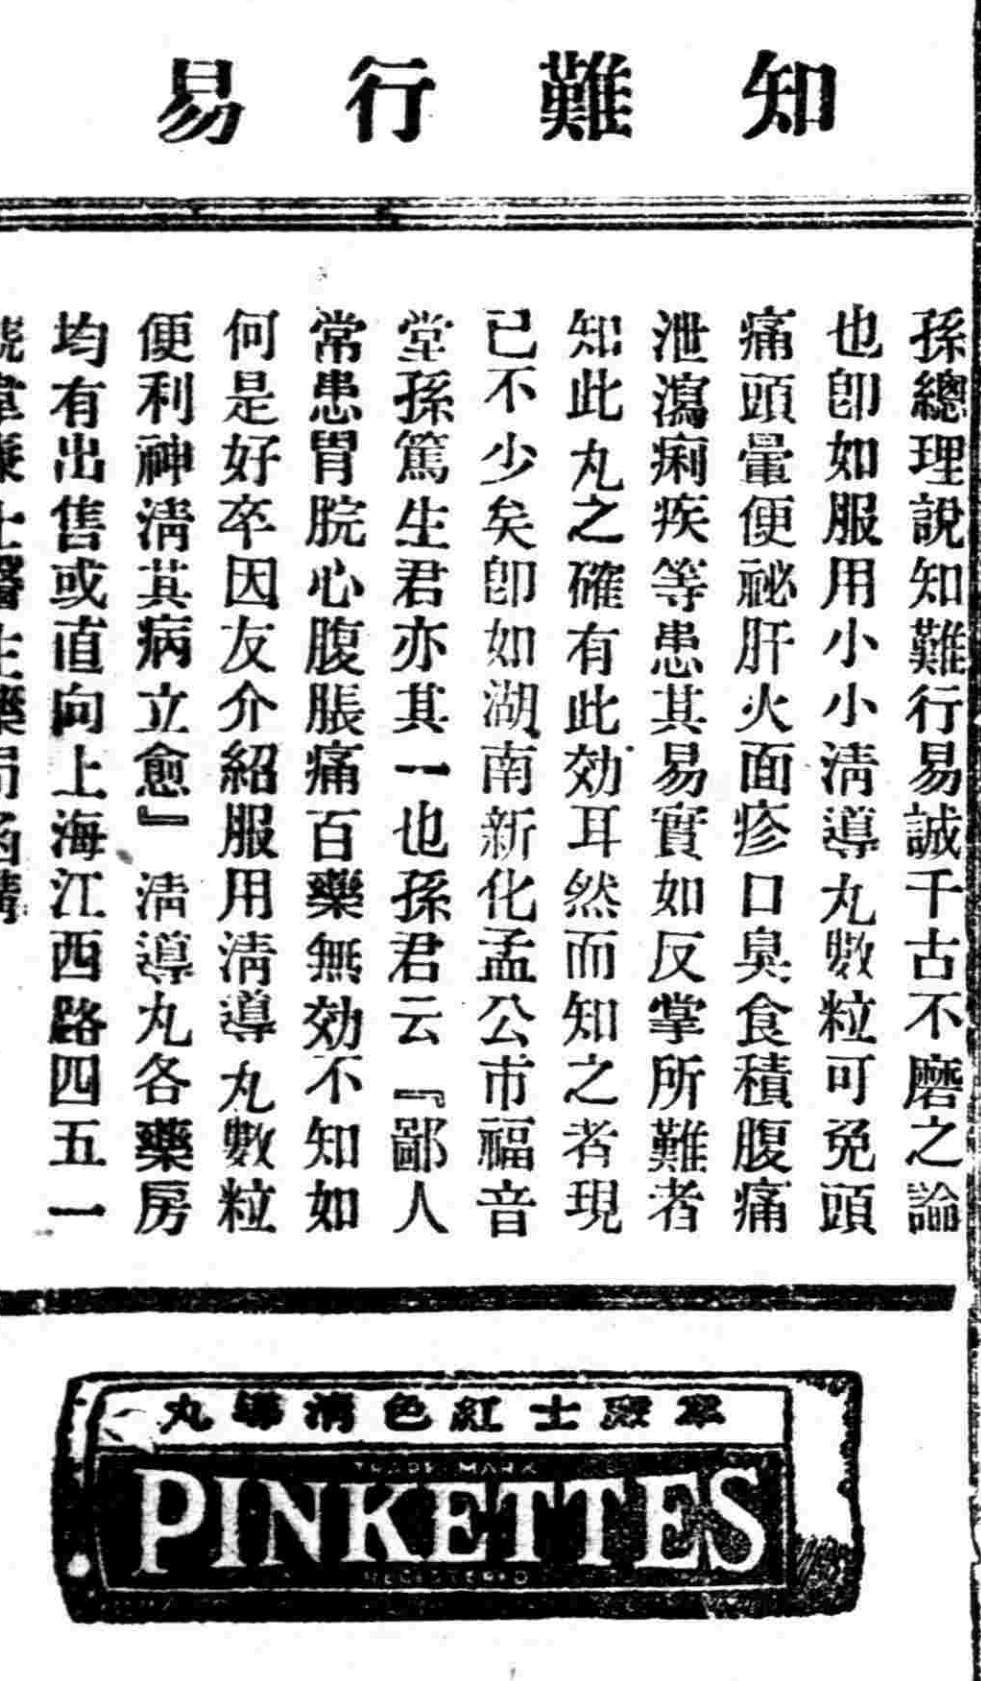 知難行易
孫總理說知難行易誠千古不磨之論
也卽如服用小小淸導丸數粒可免頭
痛頭暈便祕肝火面疹口臭食積腹痛
泄瀉痢疾等患其易實如反掌所難者
知此丸之確有此効耳然而知之者現
已不少矣卽如湖南新化孟公市福音
堂孫篤生君亦其一也孫君云『鄙人
常患胃脘心腹脹痛百藥無効不知如
何是好卒因友介紹服用淸導丸數粒
便利神淸其病立愈』淸導丸各藥房
均有出售或直向上海江西路四五一
號韋廉士醫生藥局函購
韋廉士紅色淸導丸
TRADE MARK
PINKETTES
REGISTERED